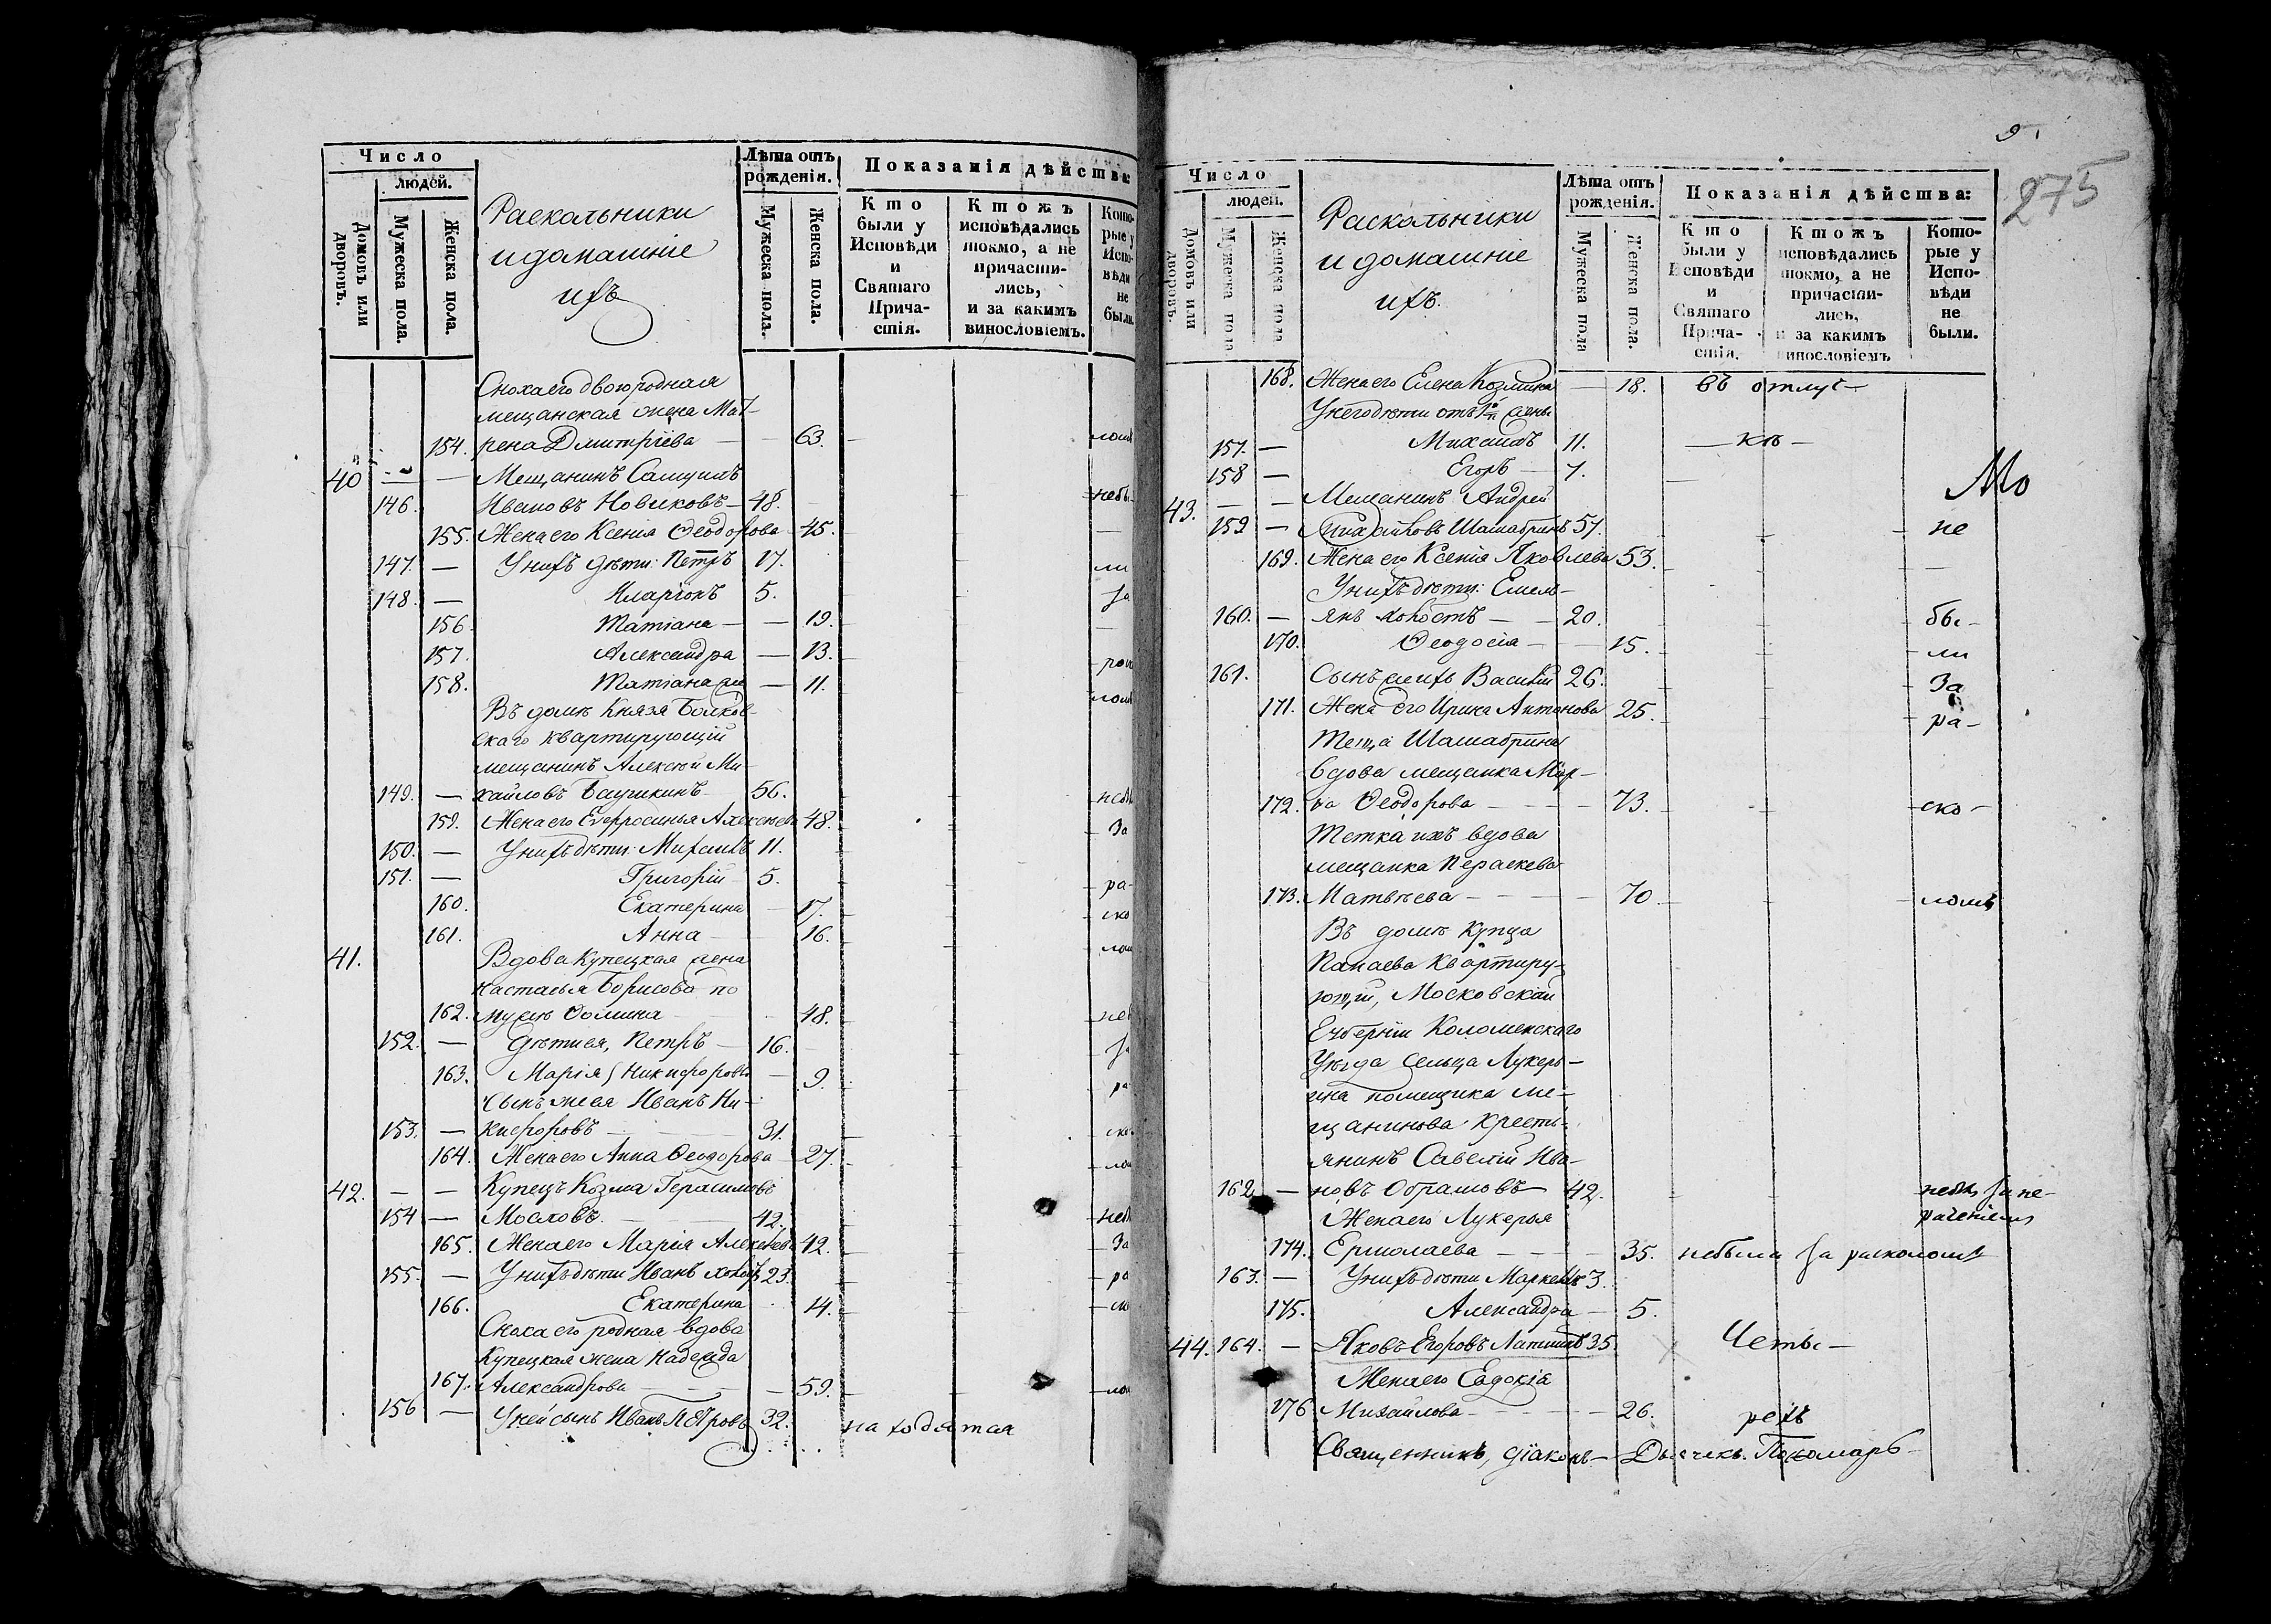 Число
людей.
Домовъ или дворовъ.
Мужеска пола.
Женска пола.
Раскольники
и домашніе
ихъ
Лѣта отъ рожденія.
Мужеска пола.
Женска пола.
Показанія дѣйства:
Кто были у Исповѣди и Святаго Причастія.
Ктожъ исповѣдались токмо, а не причастились, и за какимъ винословіемъ.
Которые у Исповѣди не были.
Сноха его двоюродная
мещанская жена Мат-
154. рена Дмитріева — — 63. — лом
40 — — Мещанинъ
146. Ивановъ Новиковъ — 48. — небы
155. Жена его Ксенія Ѳеодорова 45. —
147. — У нихъ дѣти: Петръ 17. ли
148. — Иларіонъ 5. за
156. Татіана — — 19. —
157. Александра — 13. — рас
158. Татіана — 11. лом
Въ домѣ Князя Волкон-
скаго квартирующій
мещанинъ Алексѣй Ми-
149. — хайловъ 56. небы
159. Жена его Евфросинья Алексѣева 48. За
150. — У нихъ дѣти: Михаилъ 11.
151. — Григорій 5. — ра-
160. Екатерина — 17. — ско
161. Анна — 16. — лом
41. Вдова Купецкая жена
Настасья Борисова по
162. мужѣ Ѳомина — 48. — неб
152. — Дѣти ея, Петръ — 16. за
163. Марія Никифоровы — 9. ра
Сынъ же ея Иванъ Ни-
153. — кифоровъ — 31. ско
164. Жена его Анна Ѳеодорова 27. — лом
42. — — Купецъ Козма Герасимовъ
154 — Мословъ. — 42. — небы
165. Жена его Марія Алексѣева 42. — За
155. — У нихъ дѣти Иванъ холостъ 23. — ра
166. Екатерина 14. — ско
Сноха его родная вдова
Купецкая жена Надежда
167. Александрова — 59. — лом
156 — У ней сынъ Иванъ Петровъ 32. находятся
9
275
Число
людей.
Домовъ или дворовъ.
Мужеска пола
Женска пола
Раскольники
и домашніе
ихъ.
Лѣта отъ рожденія.
Мужеска пола
Женска пола.
Показанія дѣйства:
Кто были у Исповѣди и Святаго Причастія.
Ктожъ исповѣдались токмо, а не причастились, и за какимъ винословіемъ
Которые у Исповѣди не были.
168. Жена его Елена Козмина — 18. въ отлуч-
У него дѣти отъ 1й жены
157. — Михаилъ 11. — кѣ —
158 — Егоръ — 7. —
Мо
43. — — Мещанинъ Андрей
159 — Михайловъ Шашабринъ 57. — не
169. Жена его Ксенія Яковлева 53. —
У нихъ дѣти: Емель-
160. — янъ холостъ — — 20. бы-
170. Ѳеодосія — — 15. — ли
161. Сынъ же ихъ Василій 26. За
171. Жена его Ирина Антонова 25. — ра-
Теща Шашабрина
вдова мещанка Мар-
172. ѳа Ѳеодорова — — — 73. — ско-
Тетка ихъ вдова
мещанка Параскева
173. Матвѣева — — — 70. — ломъ
Въ домѣ Купца
Панаева Квартиру-
ющій, Московской
Губерніи Коломенскаго
Уѣзда Сельца Лукерь-
ина помещика Ме-
щанинова Кресть-
янинъ Савелій Ива-
162 — новъ Обрамовъ — 42. небылъ за не-
раченіемъ
Жена его Лукерья
174. Ермолаева — — — 35. небыла за расколомъ
163. — У нихъ дѣти Маркелъ 3.
175. Александра — 5.
44. 164. — Яковъ Егоровъ 35. Четы —
Жена его Евдокія
176 Михайлова — — 26. рехъ
Священникъ, діаконъ — Дьячекъ. Пономарь